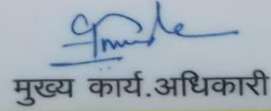 मुख्य कार्य.अधिकारी